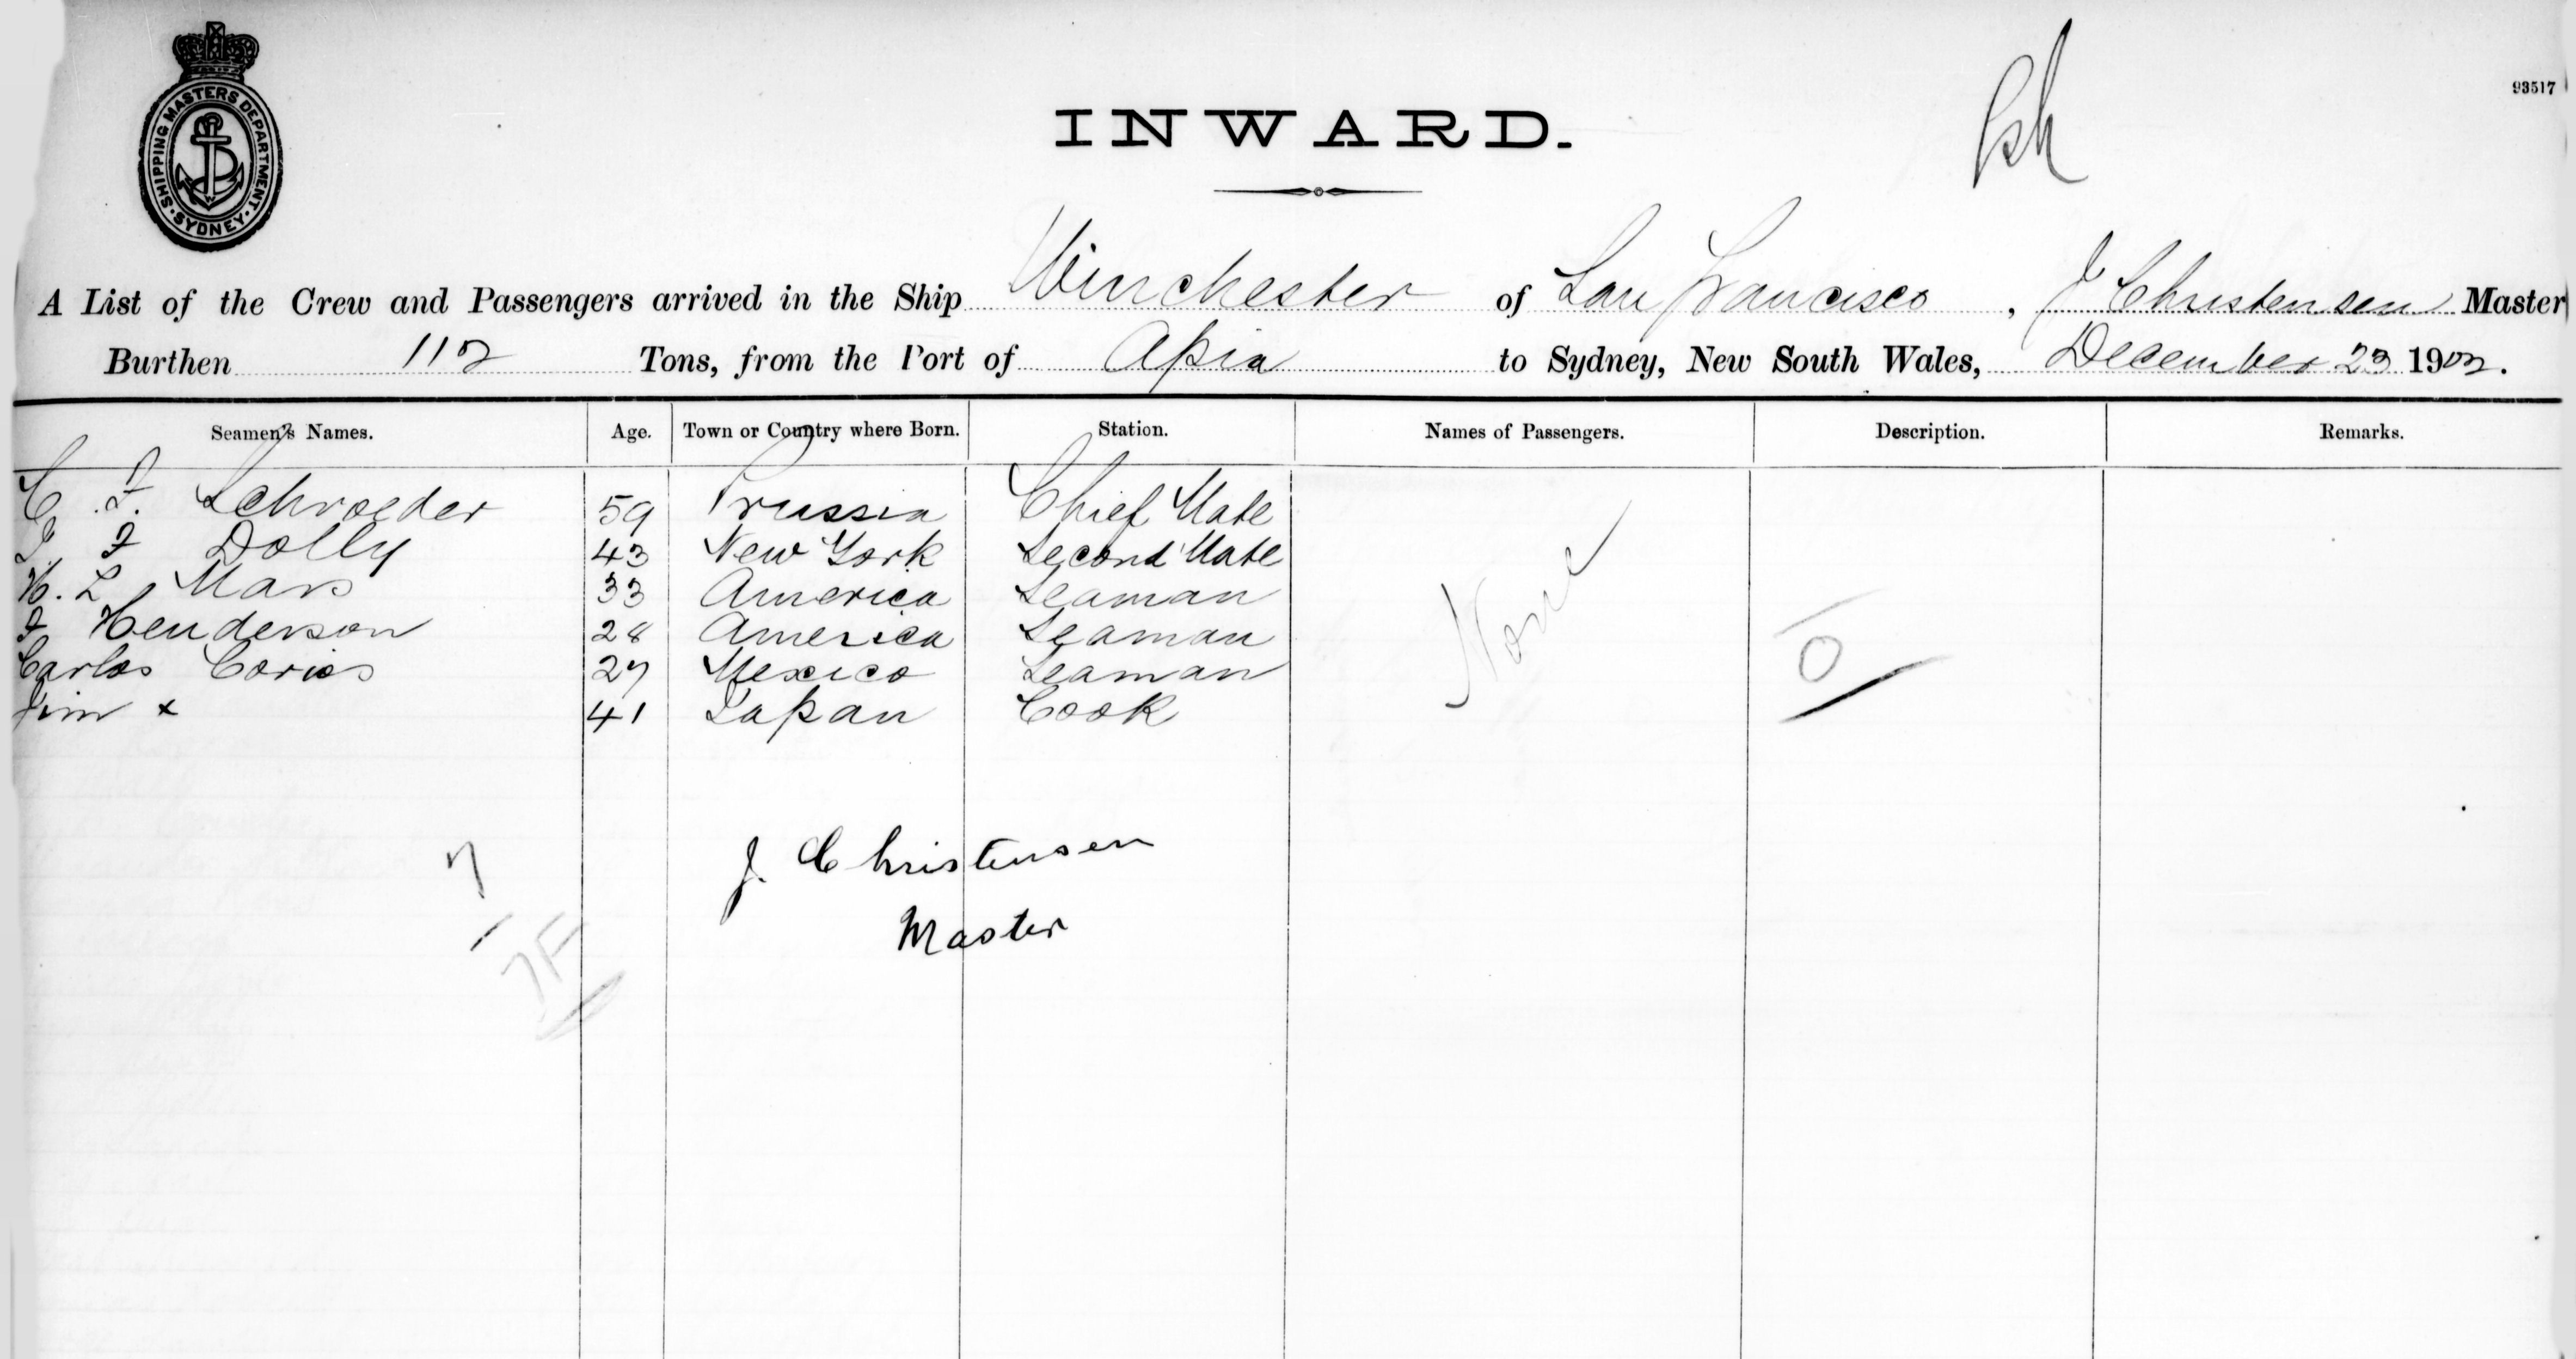 SHIPPING MASTERS DEPARTMENT. SYDNEY.
93517
INWARD.
A List of the Crew and Passengers arrived in the Ship Winchester of San Francisco, J Christensen Master
Burthen 112 Tons, from the Port of Apia to Sydney, New South Wales, December 23 1902.
Seamen's Names. Age. Town or Country where Born. Station. Names of Passengers. Description. Remarks.
C. F. Schroeder 59 Prussia Chief Mate
J. F Dolly 43 New York Second Mate
H. L Mars 33 America Seaman
F Henderson 28 America Seaman
Carlos Corios 27 Mexico Seaman
Jim x 41 Japan Cook
None
0
7
J. Christensen
Master
7F